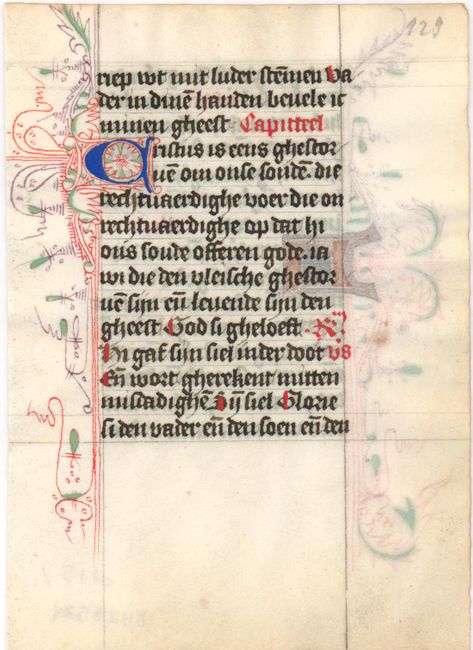 129
riep wt mit luder stēmen va
der in dinē handen beuele ic
minen gheest Capitteel
Cristus is eens ghestor
uē om onse sondē. die
rechtuaerdighe voer die on
rechtuaerdighe op dat hi
ons soude offeren gode. ia
wi die den vleische ghestor
uē sijn eñ leuende sijn den
gheest God si gheloeft
Hi gaf sijn siel inder doot vs
Eñ wort gherekent mitten
misdadighē Sijn siel Glorie
si den vader eñ den soen eñ den